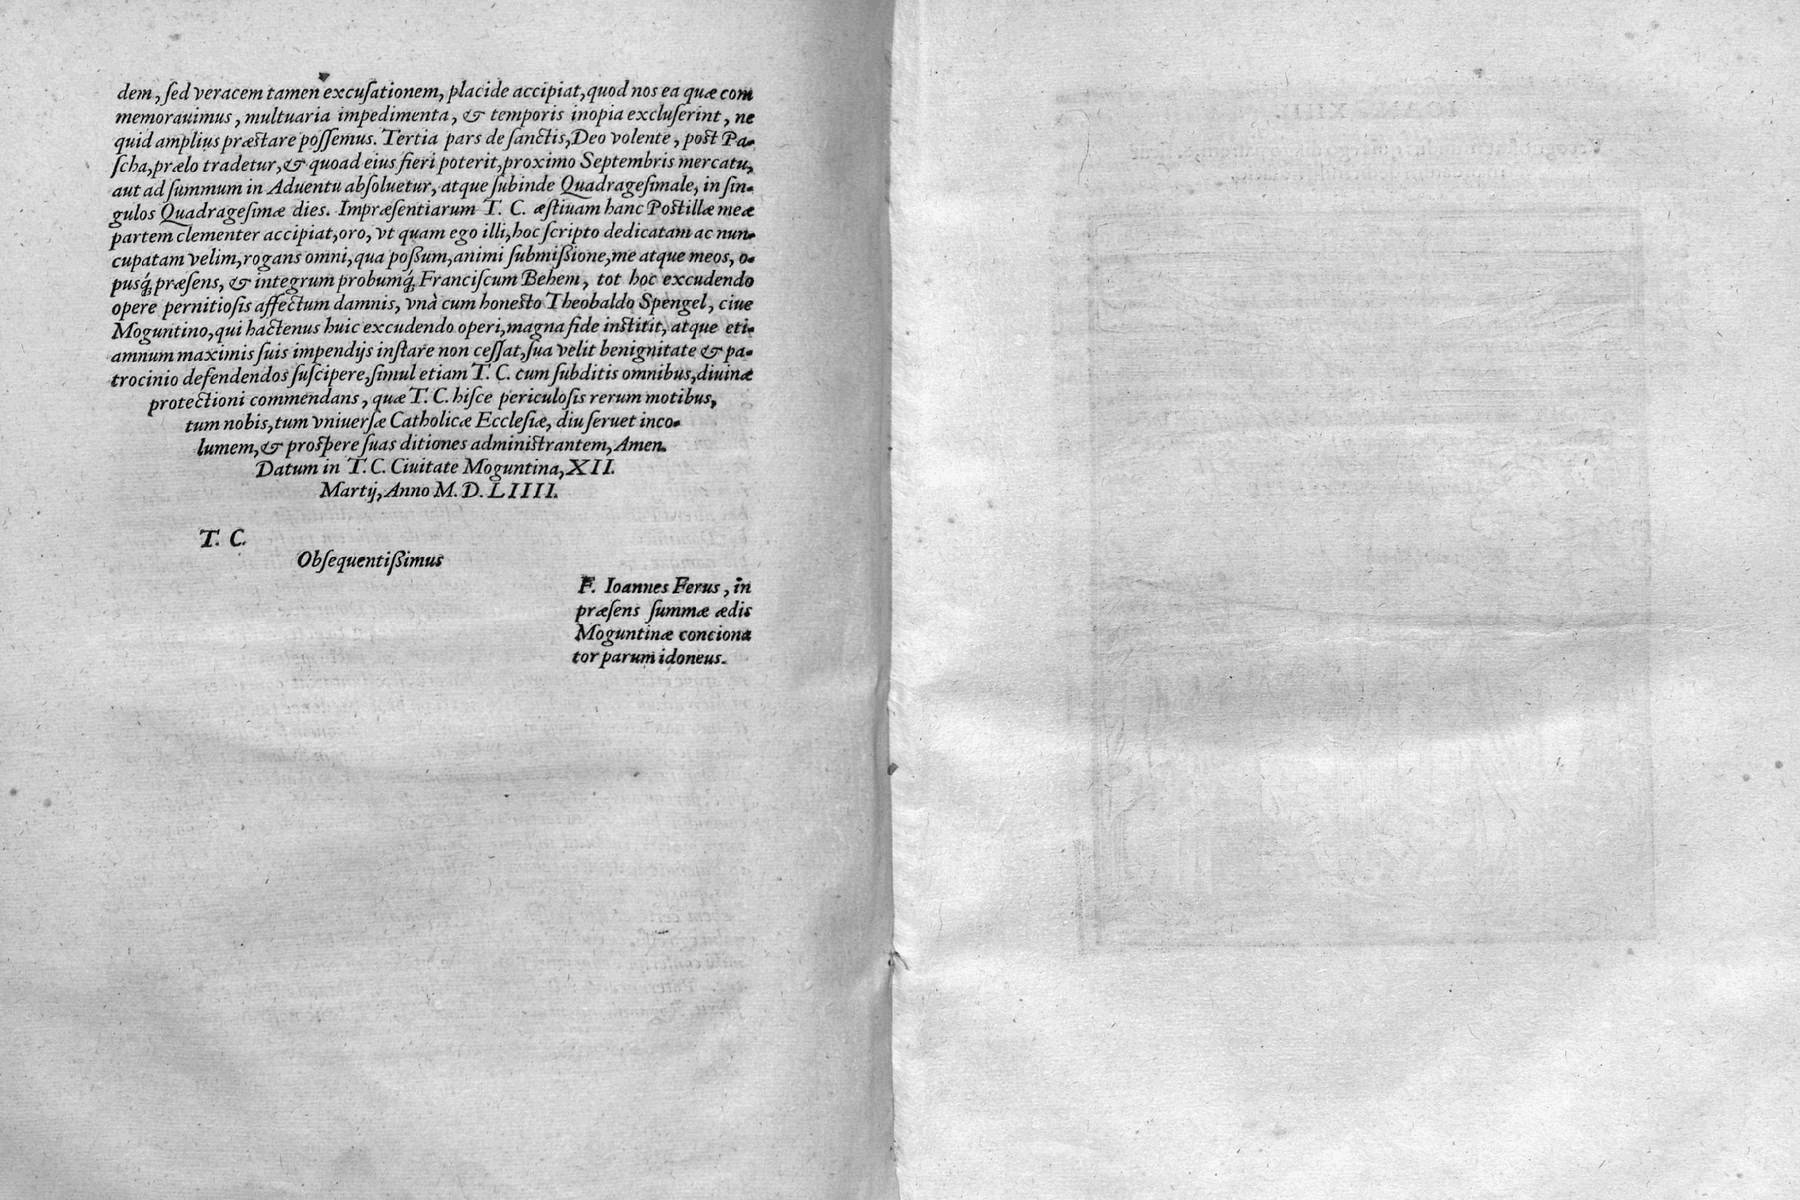 dem, ſed veracem tamen excuſationem, placide accipiat, quod nos ea quæ com
memorauimus, multuaria impedimenta, & temporis inopia excluſerint, ne
quid amplius præstare poſſemus. Tertia pars de ſanctis, Deo volente, post Pa-
ſcha, prælo tradetur, & quoad eius fieri poterit, proximo Septembris mercatu,
aut ad ſummum in Aduentu abſoluetur, atque ſubinde Quadrageſimale, in ſin-
gulos Quadrageſimæ dies. Impræſentiarum T. C. æſtiuam hanc Postillæ meæ
partem clementer accipiat, oro, vt quam ego illi, hoc ſcripto dedicatam ac nun-
cupatam velim, rogans omni, qua poſſum, animi ſubmiſſione, me atque meos, o-
pusq́; præſens, & integrum probumq́; Franciſcum Behem, tot hoc excudendo
opere pernitioſis affectum damnis, vnà cum honesto Theobaldo Spengel, ciue
Moguntino, qui hactenus huic excudendo operi, magna fide institit, atque eti-
amnum maximis ſuis impendijs inſtare non ceſſat, ſua velit benignitate & pa-
trocinio defendendos ſuſcipere, ſimul etiam T. C. cum ſubditis omnibus, diuinæ
protectioni commendans, quæ T. C. hiſce periculoſis rerum motibus,
tum nobis, tum vniuerſæ Catholicæ Eccleſiæ, diu ſeruet inco-
lumem, & proſpere ſuas ditiones administrantem, Amen.
Datum in T. C. Ciuitate Moguntina, XII.
Martij, Anno M. D. LIIII.
T. C.
Obſequentiſſimus
F. Ioannes Ferus, in
præſens ſummæ ædis
Moguntinæ conciona
tor parum idoneus.